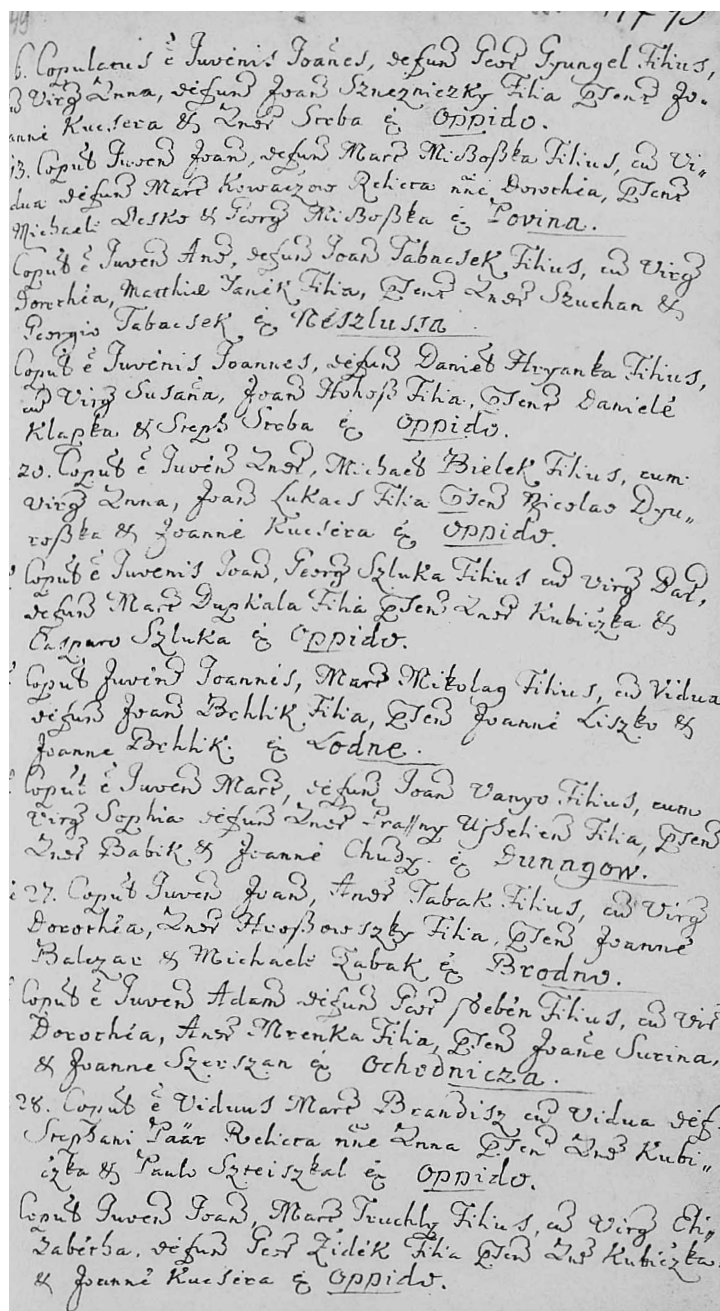 49
6. Copulatus ē Juvenis Joañes, defun Geor Gyungel Filius,
cū Virg Anna, defun Joan Sznezniczky Filia Psent Jo„
anne Kucsera & Andr Streba ex Oppido.
13. Copult Juven Joan, defun Mart Mißoßka Filius, cū Vi„
dua defun Mart Kowaczow Relicta nñe Dorothea, Psent
Michaele Desko & Georg Mißoßka ex Povina.
Copult ē Juven And, defun Joan Tabacsek Filius, cū Virg
Dorothea, Matthiæ Janek Filia, Psent Andr Szuchan &
Georgio Tabacsek ex Neszlussa
Copult ē Juvenis Joannes, defun Daniel Hryanka Filius,
cū Virg Susaña, Joan Hohoß Filia, Psent Daniele
Klapka & Steph Streba ex Oppido.
20. Copult ē Juven Andr, Michael Bielek Filius, cum
Virg Anna, Joan Lukacs Filia Psen Nicolao Dyu„
roßka & Joanne Kucsera ex Oppido.
Copult ē Juvenis Joan, Georg Szluka Filius cū Virg Dor,
defun Mart Dupkala Filia Psen Andr Kubiczka &
Casparo Szluka ex Oppido.
Copult Juven Joannes, Mart Mikolag Filius, cū Vidua
defun Joan Bchlik Filia, Psen Joanne Liszko &
Joanne Bchlik. ex Lodne.
Copult ē Juven Mart, defun Joan Vanyo Filius, cum
Virg Sophia defun Andr Filia, Psen
Andr Babik & Joanne Chudy. ex Dunagow.
27. Copult Juven Joan, Andr Tabak Filius, cū Virg
Dorothea, Andr Hroßowszky Filia, Psen Joanne
Balczar & Michaele Tabak ex Brodno.
Copult ē Juven Adam defun Geor Filius, cū Vir
Dorothea, Andr Mrenka Filia, Psen Joañe Surina,
& Joanne Szerszan ex Ochodnicza.
28. Copult ē Viduus Mart Brandisz cū Vidua def.
Stephani Paär Relicta nñe Anna Psen Andr Kubi„
czka & Paulo Szteiszkal ex Oppido.
Copult Juven Joan, Mart Truchly Filius, cū Virg Eli„
zabetha, defun Geor Zidek Filia Psen Andr Kubiczka
& Joanne Kucsera ex Oppido.